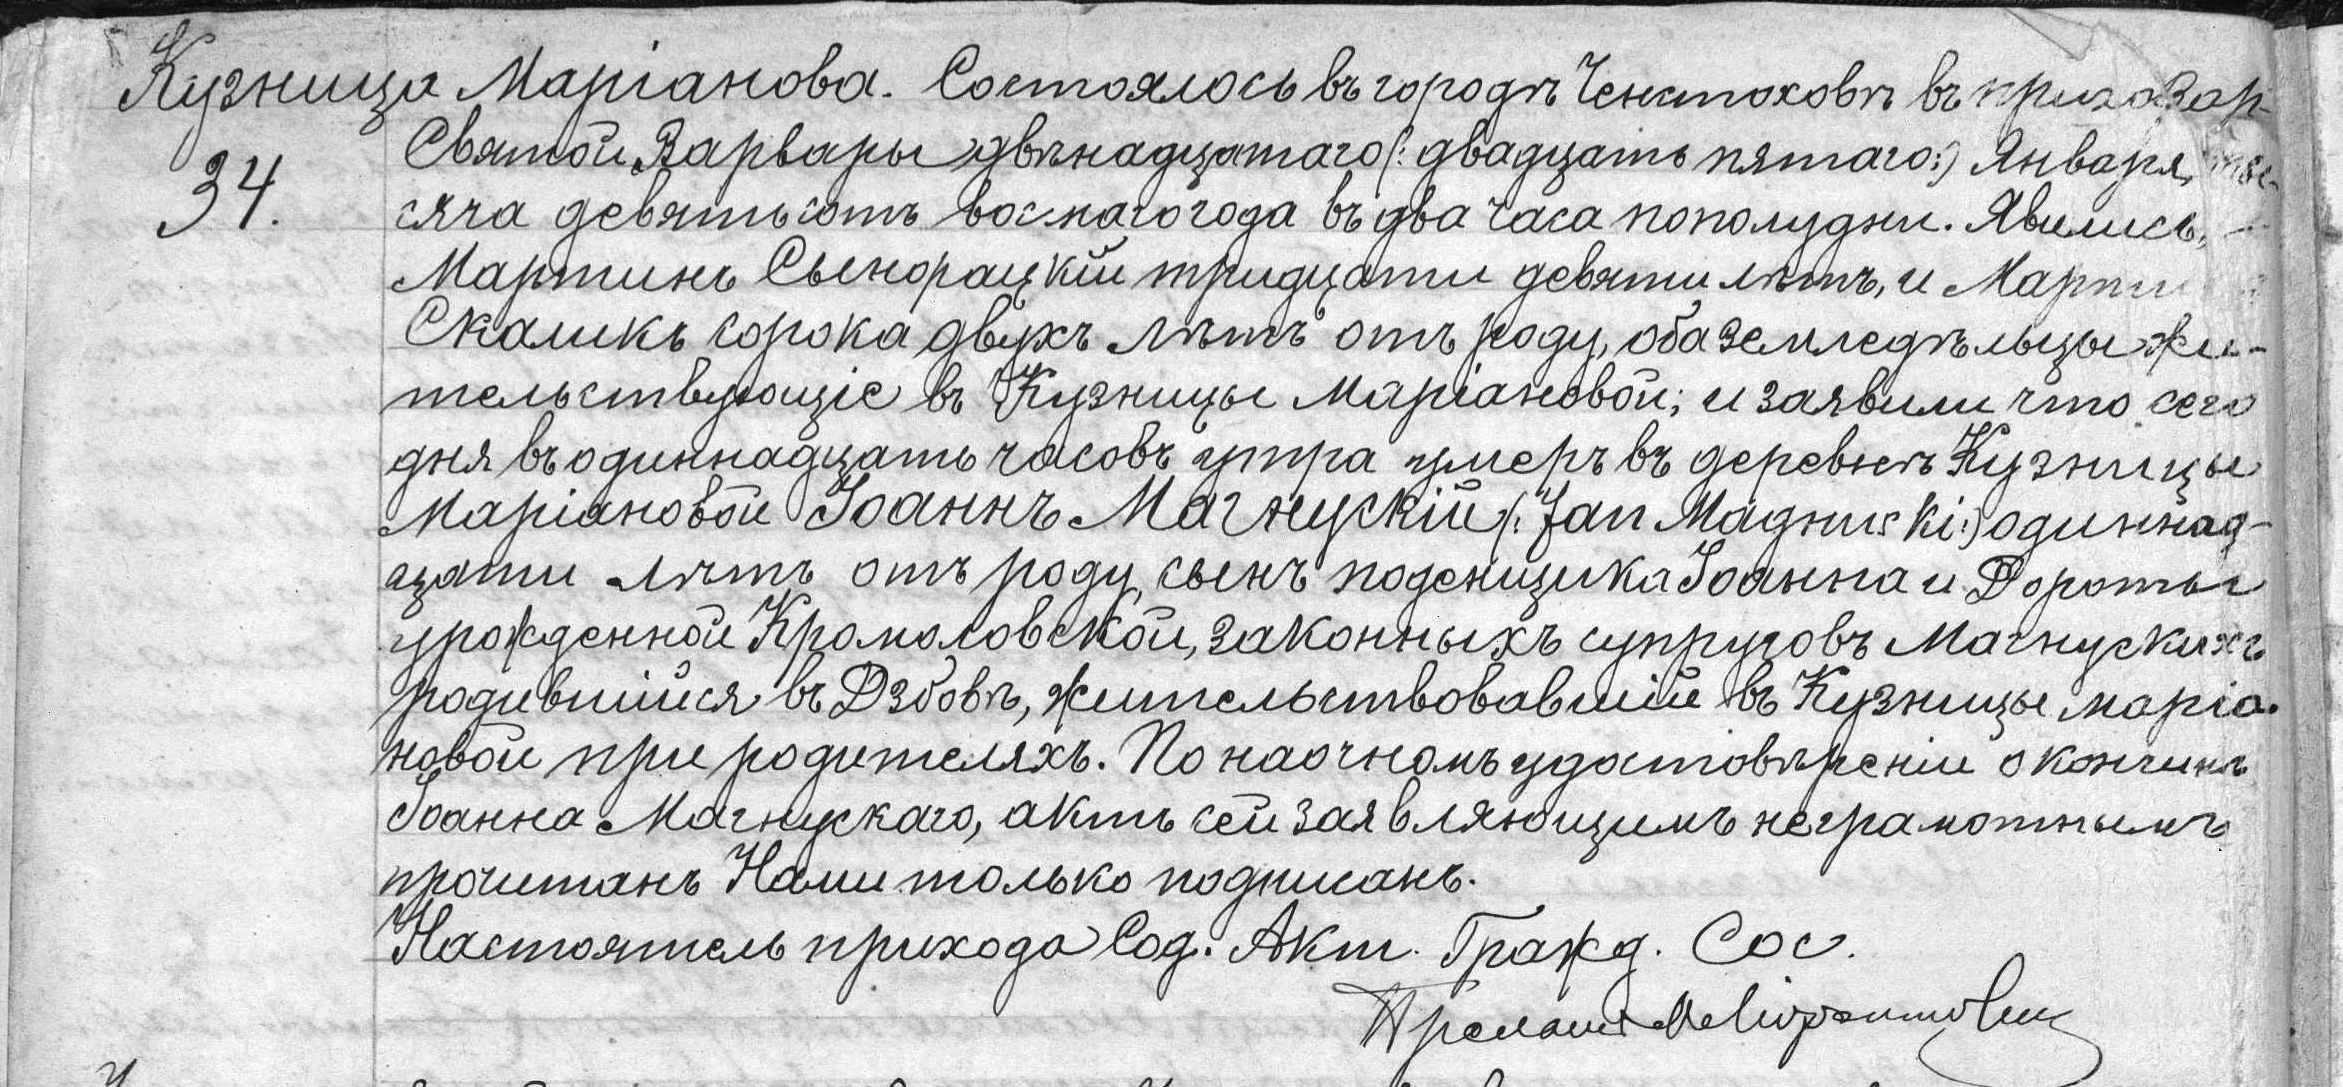 Кузница Маріанова. Состоялось въ городѣ Ченстоховѣ въ
34.
Святой Варвары двѣнадцатаго (: двадцать пятаго:) Января, тые-
сяча девятьсотъ восмаго года въ два часа пополудни. Явились,
Мартинъ Сынорацкій тридцати девяти лѣтъ, и
Скаликъ сорока двухъ лѣтъ отъ роду, оба земледѣльцы жи-
тельствующіе въ Кузницы Маріановой; и заявили что сего
дня въ одиннадцать часовъ утра умеръ въ деревнѣ Кузницы
Маріановой Іоаннъ Магнускій (: Jan Magnuski:) одиннад-
цати лѣтъ отъ роду, сынъ поденщика Іоанна и Дороты
урожденной Кромоловской, законныхъ супруговъ Магнускихъ
родившійся въ Дзбовѣ, жительствовавшій въ Кузницы маріа-
новой при родителяхъ. По наочномъ удостовѣреніи о кончинѣ
Іоанна Магнускаго, актъ сей заявляющимъ неграмотнымъ
прочитанъ Нами только подписанъ.
Настоятель прихода Сод. Акт. Гражд. Сос.